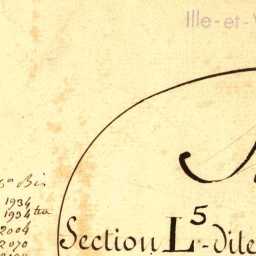 Ille-et-
Bis
1934
1934 ter
2004
2070
Section L5 - dite